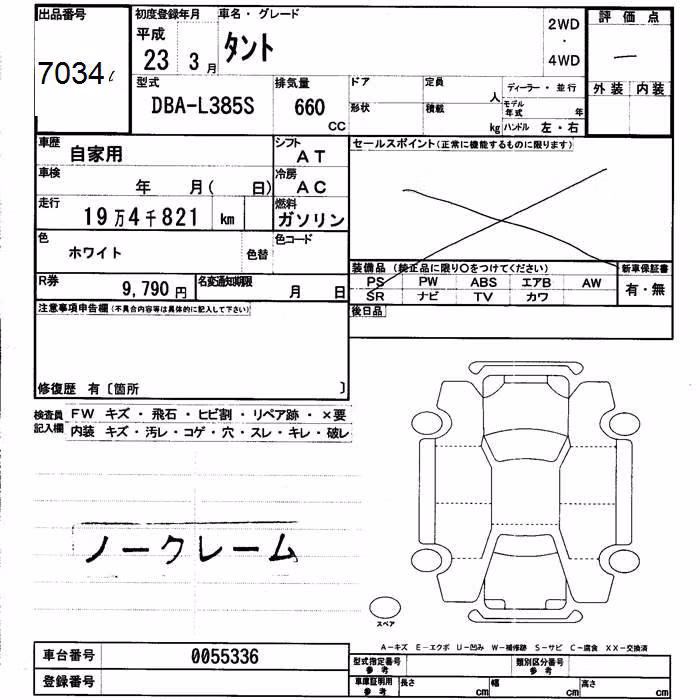 出品番号
7034
初度登録年月
平成
23 3月
車名・グレード
タント
2WD
・
4WD
評価点
―
外装 内装
型式
DBA-L385S
排気量
660
CC
ドア
定員
人
形状
積載
kg
ディーラー・並行
モデル年式 年
ハンドル 左・右
車歴
自家用
シフト
AT
車検
年 月( 日)
冷房
AC
走行
19万4千821 km
燃料
ガソリン
色
ホワイト
色替
色コード
R券
9,790円
名変通知期限
月 日
セールスポイント(正常に機能するものに限ります)
装備品 (純正品に限り○をつけてください)
PS PW ABS エアB AW
SR ナビ TV カワ
新車保証書
有・無
後日品
注意事項申告欄(不具合内容等は具体的に記入して下さい)
修復歴 有〔箇所 〕
検査員記入欄
FW キズ・飛石・ヒビ割・リペア跡・×要
内装 キズ・汚レ・コゲ・穴・スレ・キレ・破レ
ノークレーム
スペア
A-キズ E-エクボ U-凹み W-補修跡 S-サビ C-腐食 XX-交換済
車台番号
0055336
登録番号
型式指定番号
参考
類別区分番号
参考
車庫証明用
参考
長さ cm
幅 cm
高さ cm